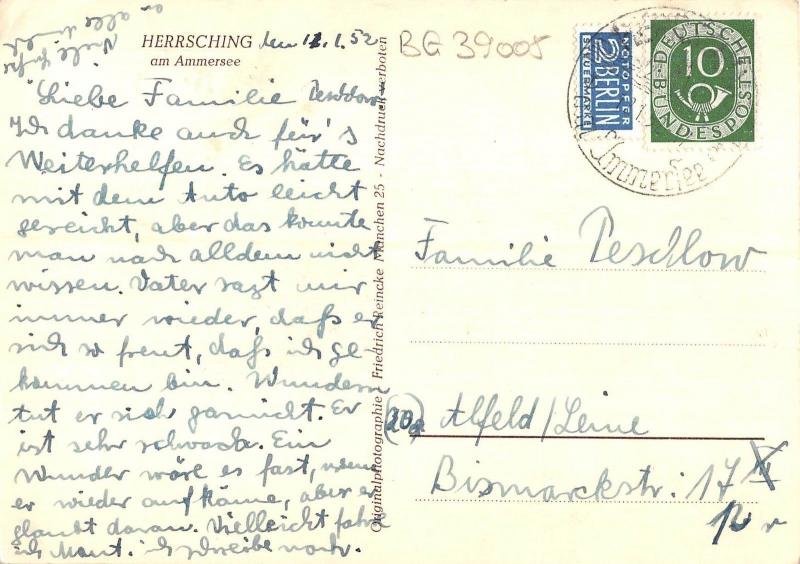 HERRSCHING den 12.1.52
am Ammersee
Liebe Familie Peschlow
Ich danke auch für's
Weiterhelfen. Es hätte
mit dem Auto leicht
gereicht, aber das konnte
man nach alldem nicht
wissen. Vater sagt mir
immer wieder, daß er
sich so freut, daß ich ge-
kommen bin. Wundern
tut er sich garnicht. Er
ist sehr schwach. Ein
Wunder wäre es fast, wenn
er wieder aufkäme, aber er
glaubt daran. Vielleicht fahre
ich Mont. ich schreibe noch.
Viele Grüße
an alle
Originalphotographie Friedrich Reincke München 25 - Nachdruck verboten
BG 39005
NOTOPFER
2 BERLIN
STEUERMARKE
DEUTSCHE
10
BUNDESPOST
Ammersee
Familie Peschlow
(20a) Alfeld/Leine
Bismarckstr. 17